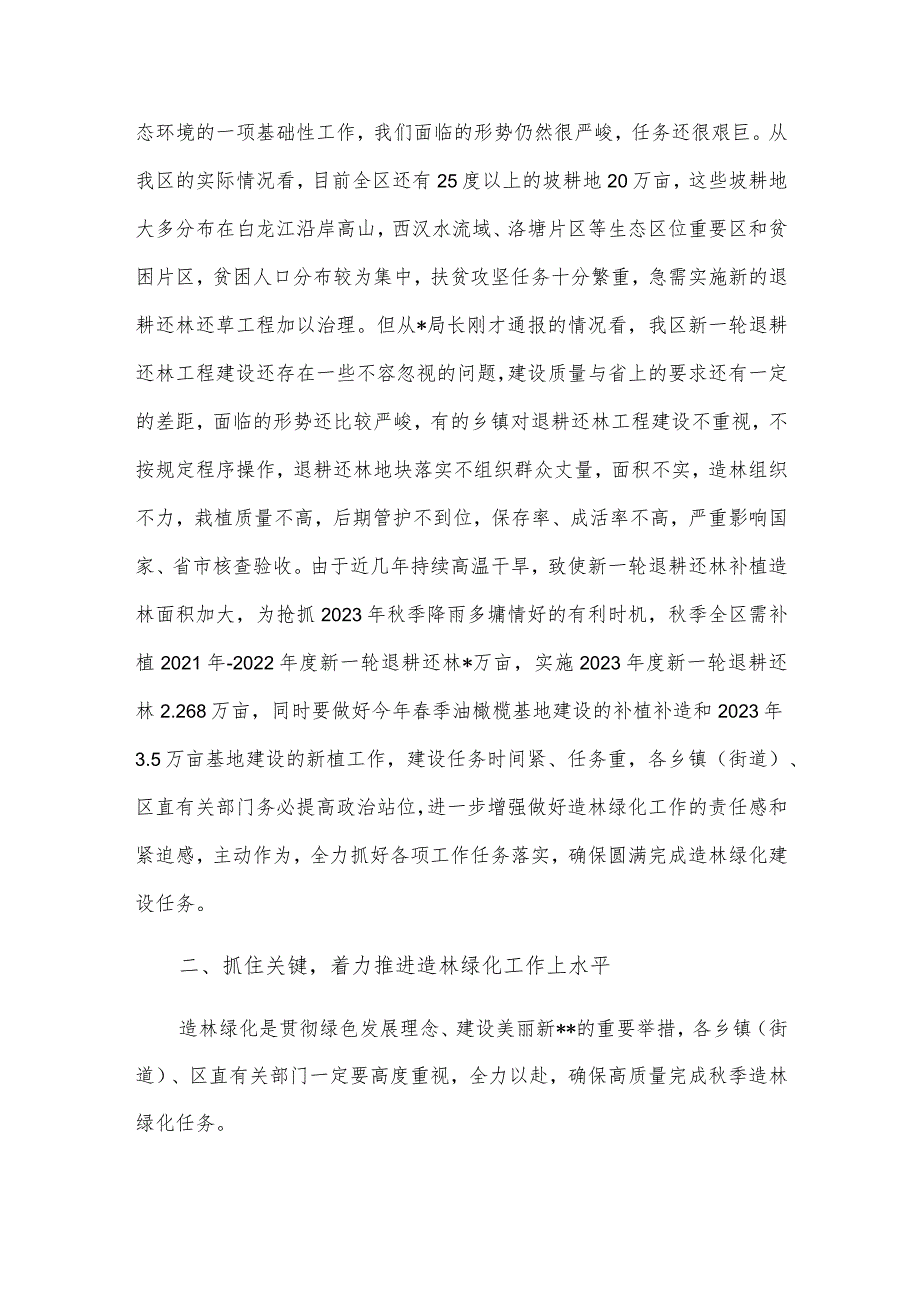 态环境的一项基础性工作，我们面临的形势仍然很严峻，任务还很艰巨。从
我区的实际情况看，目前全区还有 25 度以上的坡耕地 20 万亩，这些坡耕地
大多分布在白龙江沿岸高山，西汉水流域、洛塘片区等生态区位重要区和贫
困片区，贫困人口分布较为集中，扶贫攻坚任务十分繁重，急需实施新的退
耕还林还草工程加以治理。但从*局长刚才通报的情况看，我区新一轮退耕
还林工程建设还存在一些不容忽视的问题，建设质量与省上的要求还有一定
的差距，面临的形势还比较严峻，有的乡镇对退耕还林工程建设不重视，不
按规定程序操作，退耕还林地块落实不组织群众丈量，面积不实，造林组织
不力，栽植质量不高，后期管护不到位，保存率、成活率不高，严重影响国
家、省市核查验收。由于近几年持续高温干旱，致使新一轮退耕还林补植造
林面积加大，为抢抓 2023 年秋季降雨多墉情好的有利时机，秋季全区需补
植 2021 年-2022 年度新一轮退耕还林*万亩，实施 2023 年度新一轮退耕还
林 2.268 万亩，同时要做好今年春季油橄榄基地建设的补植补造和 2023 年
3.5 万亩基地建设的新植工作，建设任务时间紧、任务重，各乡镇（街道）、
区直有关部门务必提高政治站位，进一步增强做好造林绿化工作的责任感和
紧迫感，主动作为，全力抓好各项工作任务落实，确保圆满完成造林绿化建
设任务。
二、抓住关键，着力推进造林绿化工作上水平
造林绿化是贯彻绿色发展理念、建设美丽新**的重要举措，各乡镇（街
道）、区直有关部门一定要高度重视，全力以赴，确保高质量完成秋季造林
绿化任务。